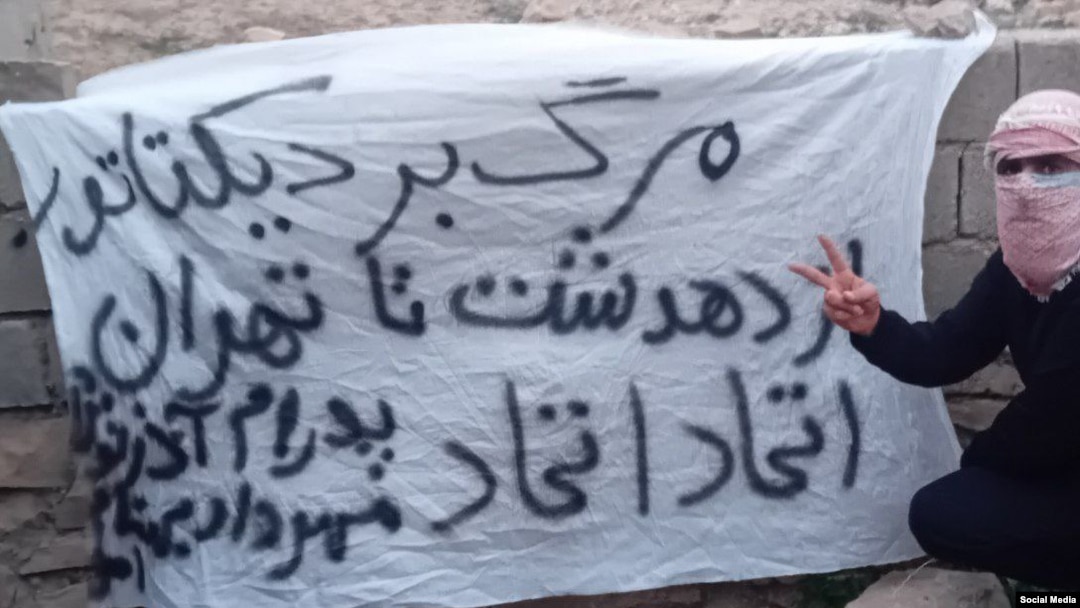 مرگ بر دیکتاتور
از دهدشت تا تهران
اتحاد اتحاد
پدرام آذرنوش
مهرداد بهنام
Social Media